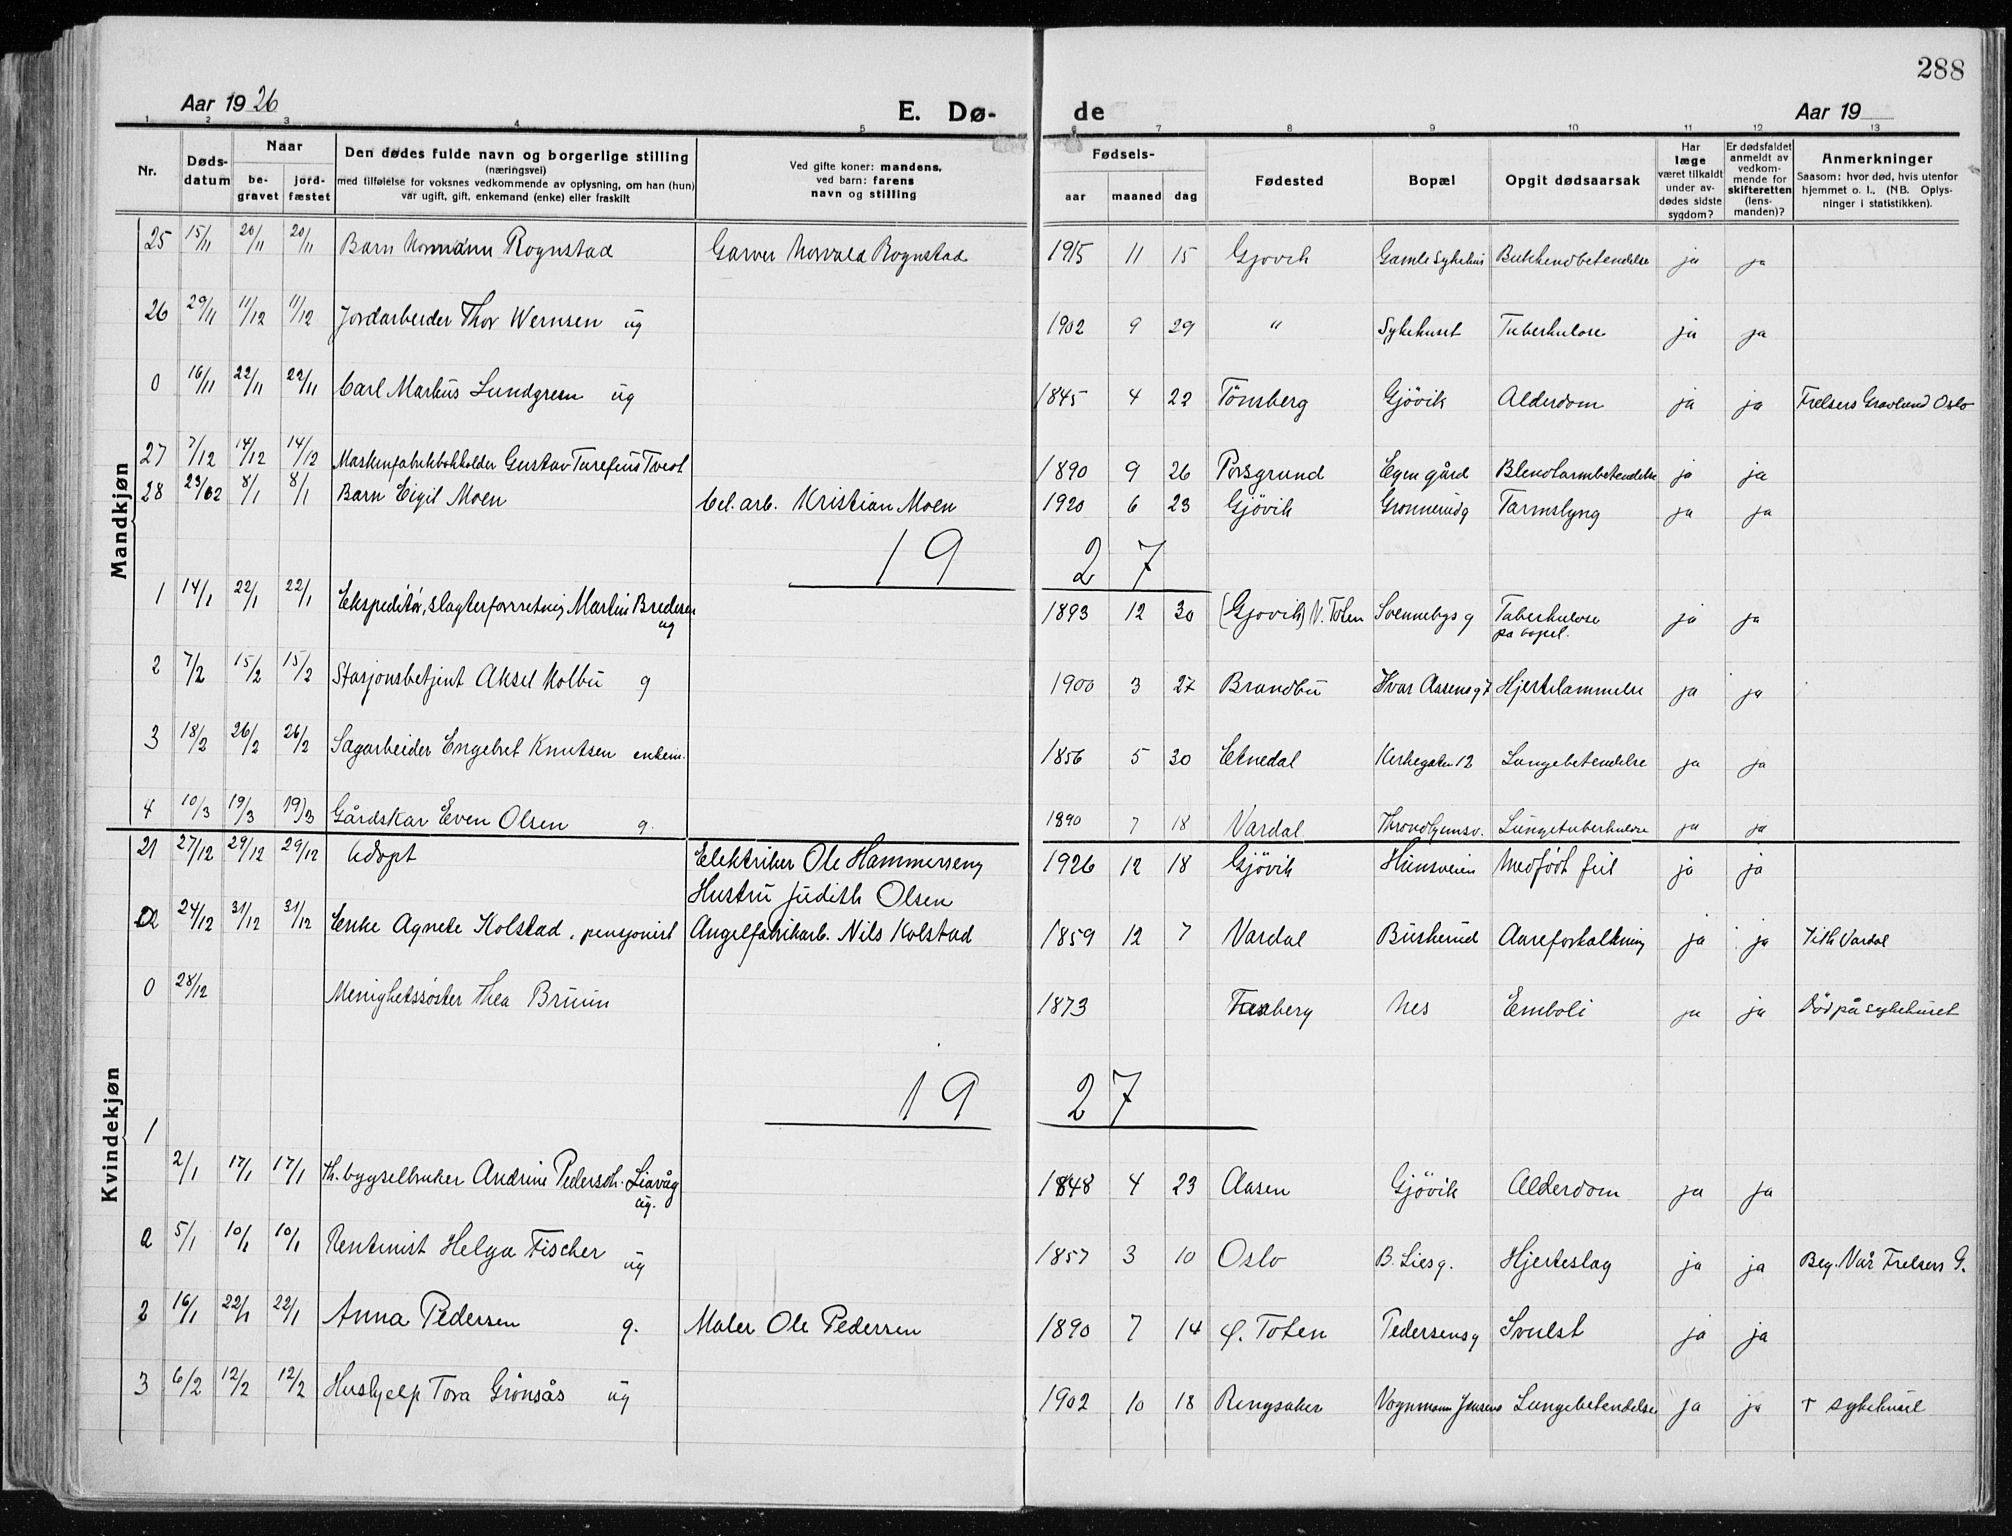 288
Aar 1926
E. Dø-
de
Aar 19
1 2 3 4 5 6 7 8 9 10 11 12 13
Nr.
Døds-
datum
Naar
be-
gravet
jord-
fæstet
Den dødes fulde navn og borgerlige stilling
(næringsvei)
med tilføielse for voksnes vedkommende av oplysning, om han (hun)
var ugift, gift, enkemand (enke) eller fraskilt
Ved gifte koner: mandens,
ved barn: farens
navn og stilling
Fødsels-
aar maaned dag
Fødested
Bopæl
Opgit dødsaarsak
Har
læge
været tilkaldt
under av-
dødes sidste
sygdom?
Er dødsfaldet
anmeldt av
vedkom-
mende for
skifteretten
(lens-
manden)?
Anmerkninger
Saasom: hvor død, hvis utenfor
hjemmet o. l., (NB. Oplys-
ninger i statistikken).
Mandkjøn
25 15/11 20/11 20/11 Barn Normann Rognstad Garver Norvald Rognstad 1915 11 15 Gjøvik Gamle Sykehus Bukhendbetendelse ja ja
26 29/11 11/12 11/12 Jordarbeider Thor Wernsen ug 1902 9 29 " Sykehuset Tuberkulose ja ja
0 16/11 22/11 22/11 Carl Markus Lundgreen ug 1845 4 22 Tönsberg Gjövik Alderdom ja ja Frelsers Gravlund Oslo
27 7/12 14/12 14/12 Maskinfabrikbokholder Gustav Turefius Tveit 1890 9 26 Porsgrund Egen gård Blendtarmbetendelse ja ja
28 23/12 8/1 8/1 Barn Eigil Moen Cel. arb. Kristian Moen 1920 6 23 Gjövik Grønnerudg Tarmslyng ja ja
19 27
1 14/1 22/1 22/1 Ekspeditör, slagterforretning Martin Bredesen ug 1893 12 30 (Gjøvik) V. Toten Svennebys g Tuberkulose på bopel. ja ja
2 7/2 15/2 15/2 Stasjonsbetjent Aksel Kolbu g 1900 3 27 Brandbu Ivar Aasensg 7 Hjertelammelse ja ja
3 18/2 26/2 26/2 Sagarbeider Engebret Knutsen enkem. 1856 5 30 Etnedal Kirkegaten 12 Lungebetendelse ja ja
4 10/3 19/3 19/3 Gårdskar Even Olsen g. 1890 7 18 Vardal Throndhjemsv. Lungetuberkulose ja ja
Kvindekjøn
21 27/12 29/12 29/12 Udøpt Elektriker Ole Hammerseng 1926 12 18 Gjövik Hunsveien Medfödt feil ja ja
Hustru Judith Olsen
22 24/12 31/12 31/12 Enke Agnete Kolstad, pensjonist Angelfabrikarb. Nils Kolstad 1859 12 7 Vardal Buskerud Aareforkalkning ja ja Vith Vardal
0 28/12 Menighetssöster Thea Bruun 1873 Tønsberg Nes Emboli ja ja Död på sykehuset
19 27
1
2/1 17/1 17/1 Th. bygselbruker Andrine Pedersdt. Liavåg ug. 1848 4 23 Aasen Gjövik Alderdom ja ja
2 5/1 10/1 10/1 Rentenist Helga Fischer ug 1857 3 10 Oslo B. Liesg. Hjerteslag ja ja Beg. Vår Frelsers G.
2 16/1 22/1 22/1 Anna Pedersen g. Maler Ole Pedersen 1890 7 14 Ø. Toten Pedersensg Svulst ja ja
3 6/2 12/2 12/2 Hushjelp Tora Grönsås ug 1902 10 18 Ringsaker Vognmann Jensens Lungebetendelse ja ja † sykehuset